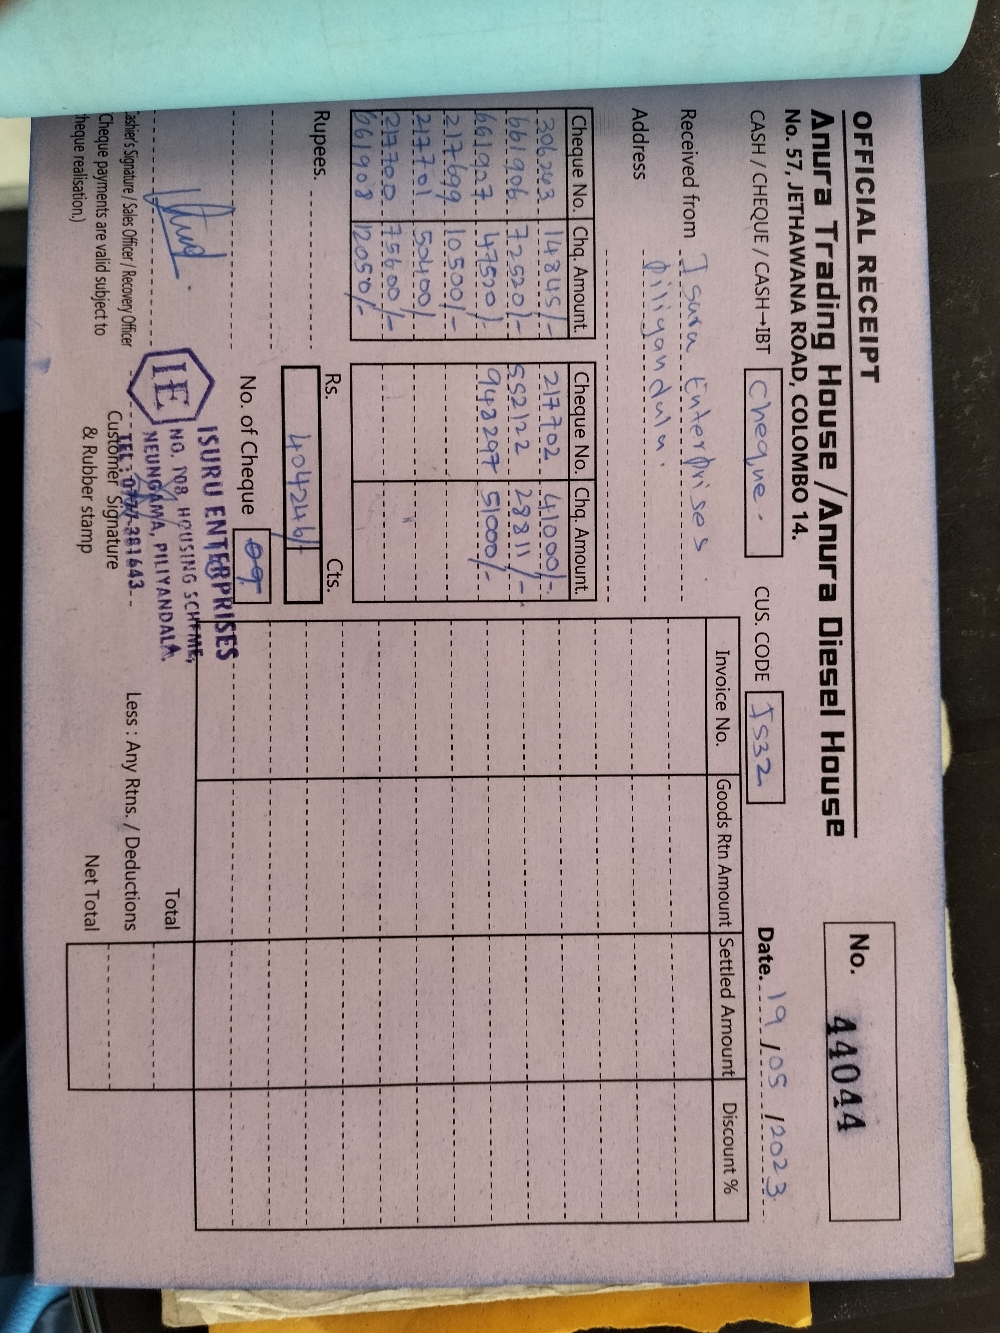 OFFICIAL RECEIPT
No. 44044
Anura Trading House /Anura Diesel House
No. 57, JETHAWANA ROAD, COLOMBO 14.
CASH / CHEQUE / CASH→IBT Cheque. CUS. CODE IS32 Date. 19/05/2023
Received from Isuru Enterprises
Address Piliyandala.
Cheque No. Chq. Amount. Cheque No. Chq. Amount.
306263 14845/- 217702 41000/-
661906 72520/- 552122 28811/-
661907 47520/- 948297 51000/-
217699 10500/-
217701 50400/-
217700 75600/-
661908 12050/-
Invoice No. Goods Rtn Amount Settled Amount Discount %
Rupees. Rs. Cts.
404246/-
No. of Cheque 09
Total
Less : Any Rtns. / Deductions
Net Total
IE
ISURU ENTERPRISES
NO. 108, HOUSING SCHEME,
NEUNGAMA, PILIYANDALA.
TEL : 0777-381643
ashier's Signature / Sales Officer / Recovery Officer
Cheque payments are valid subject to
heque realisation.)
Customer Signature
& Rubber stamp